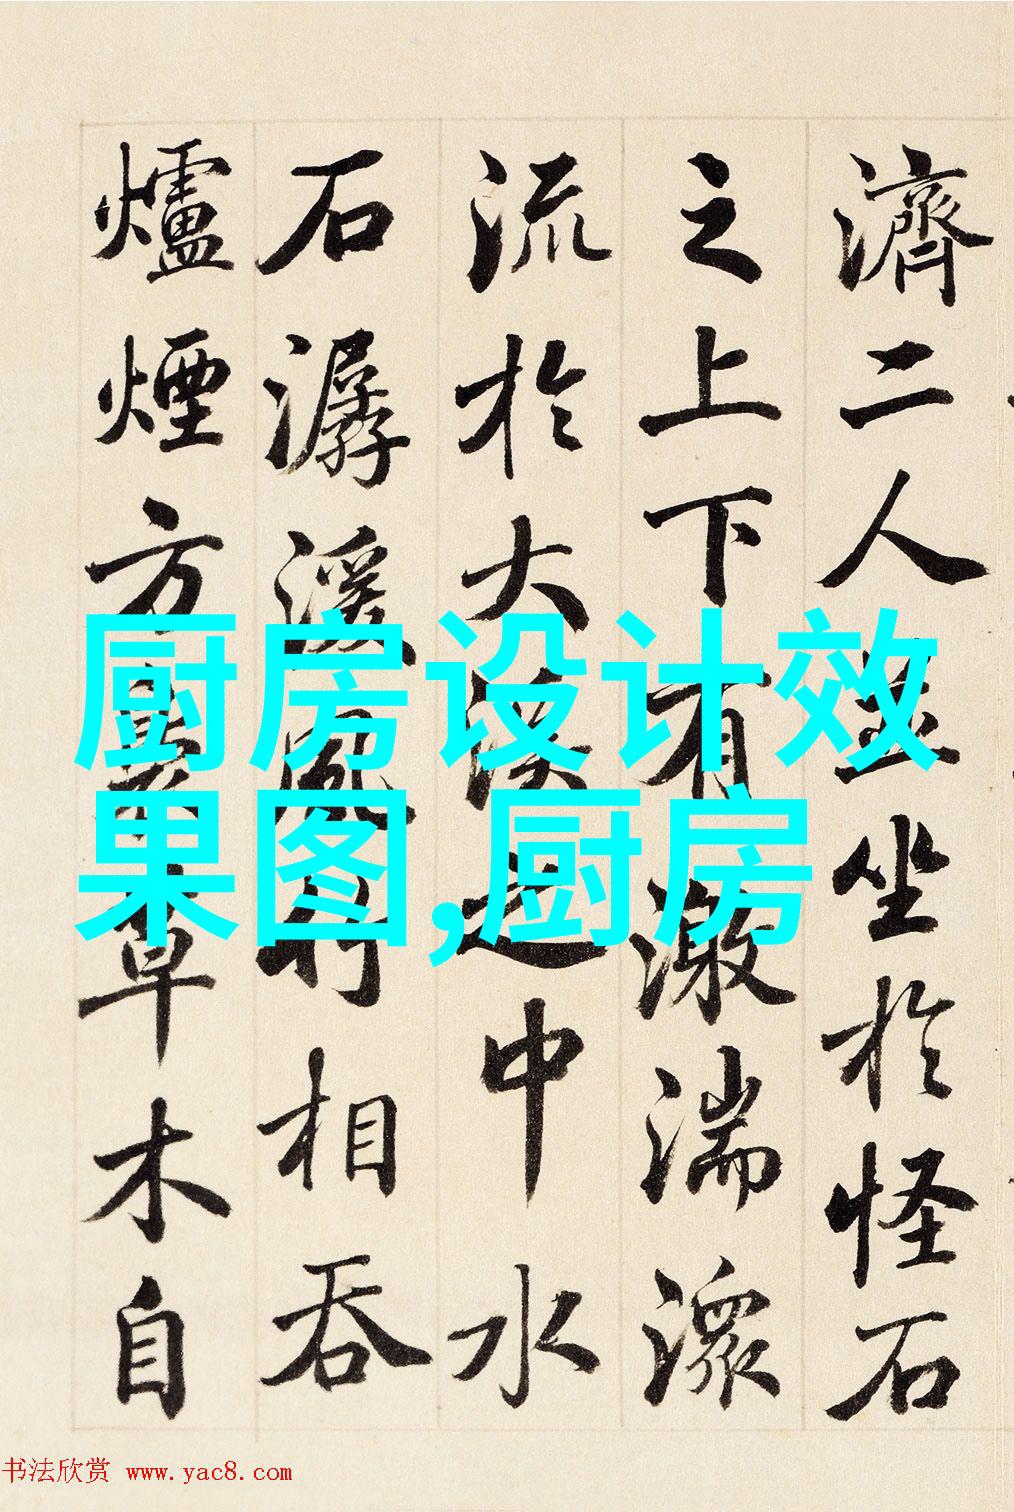 濟二人並坐於怪石
之上下有激湍潀
流於大溪之中水
石潺湲風竹相吞
爐煙方裊草木自
厨房设计效
果图,厨房
书法欣赏 www.yac8.com